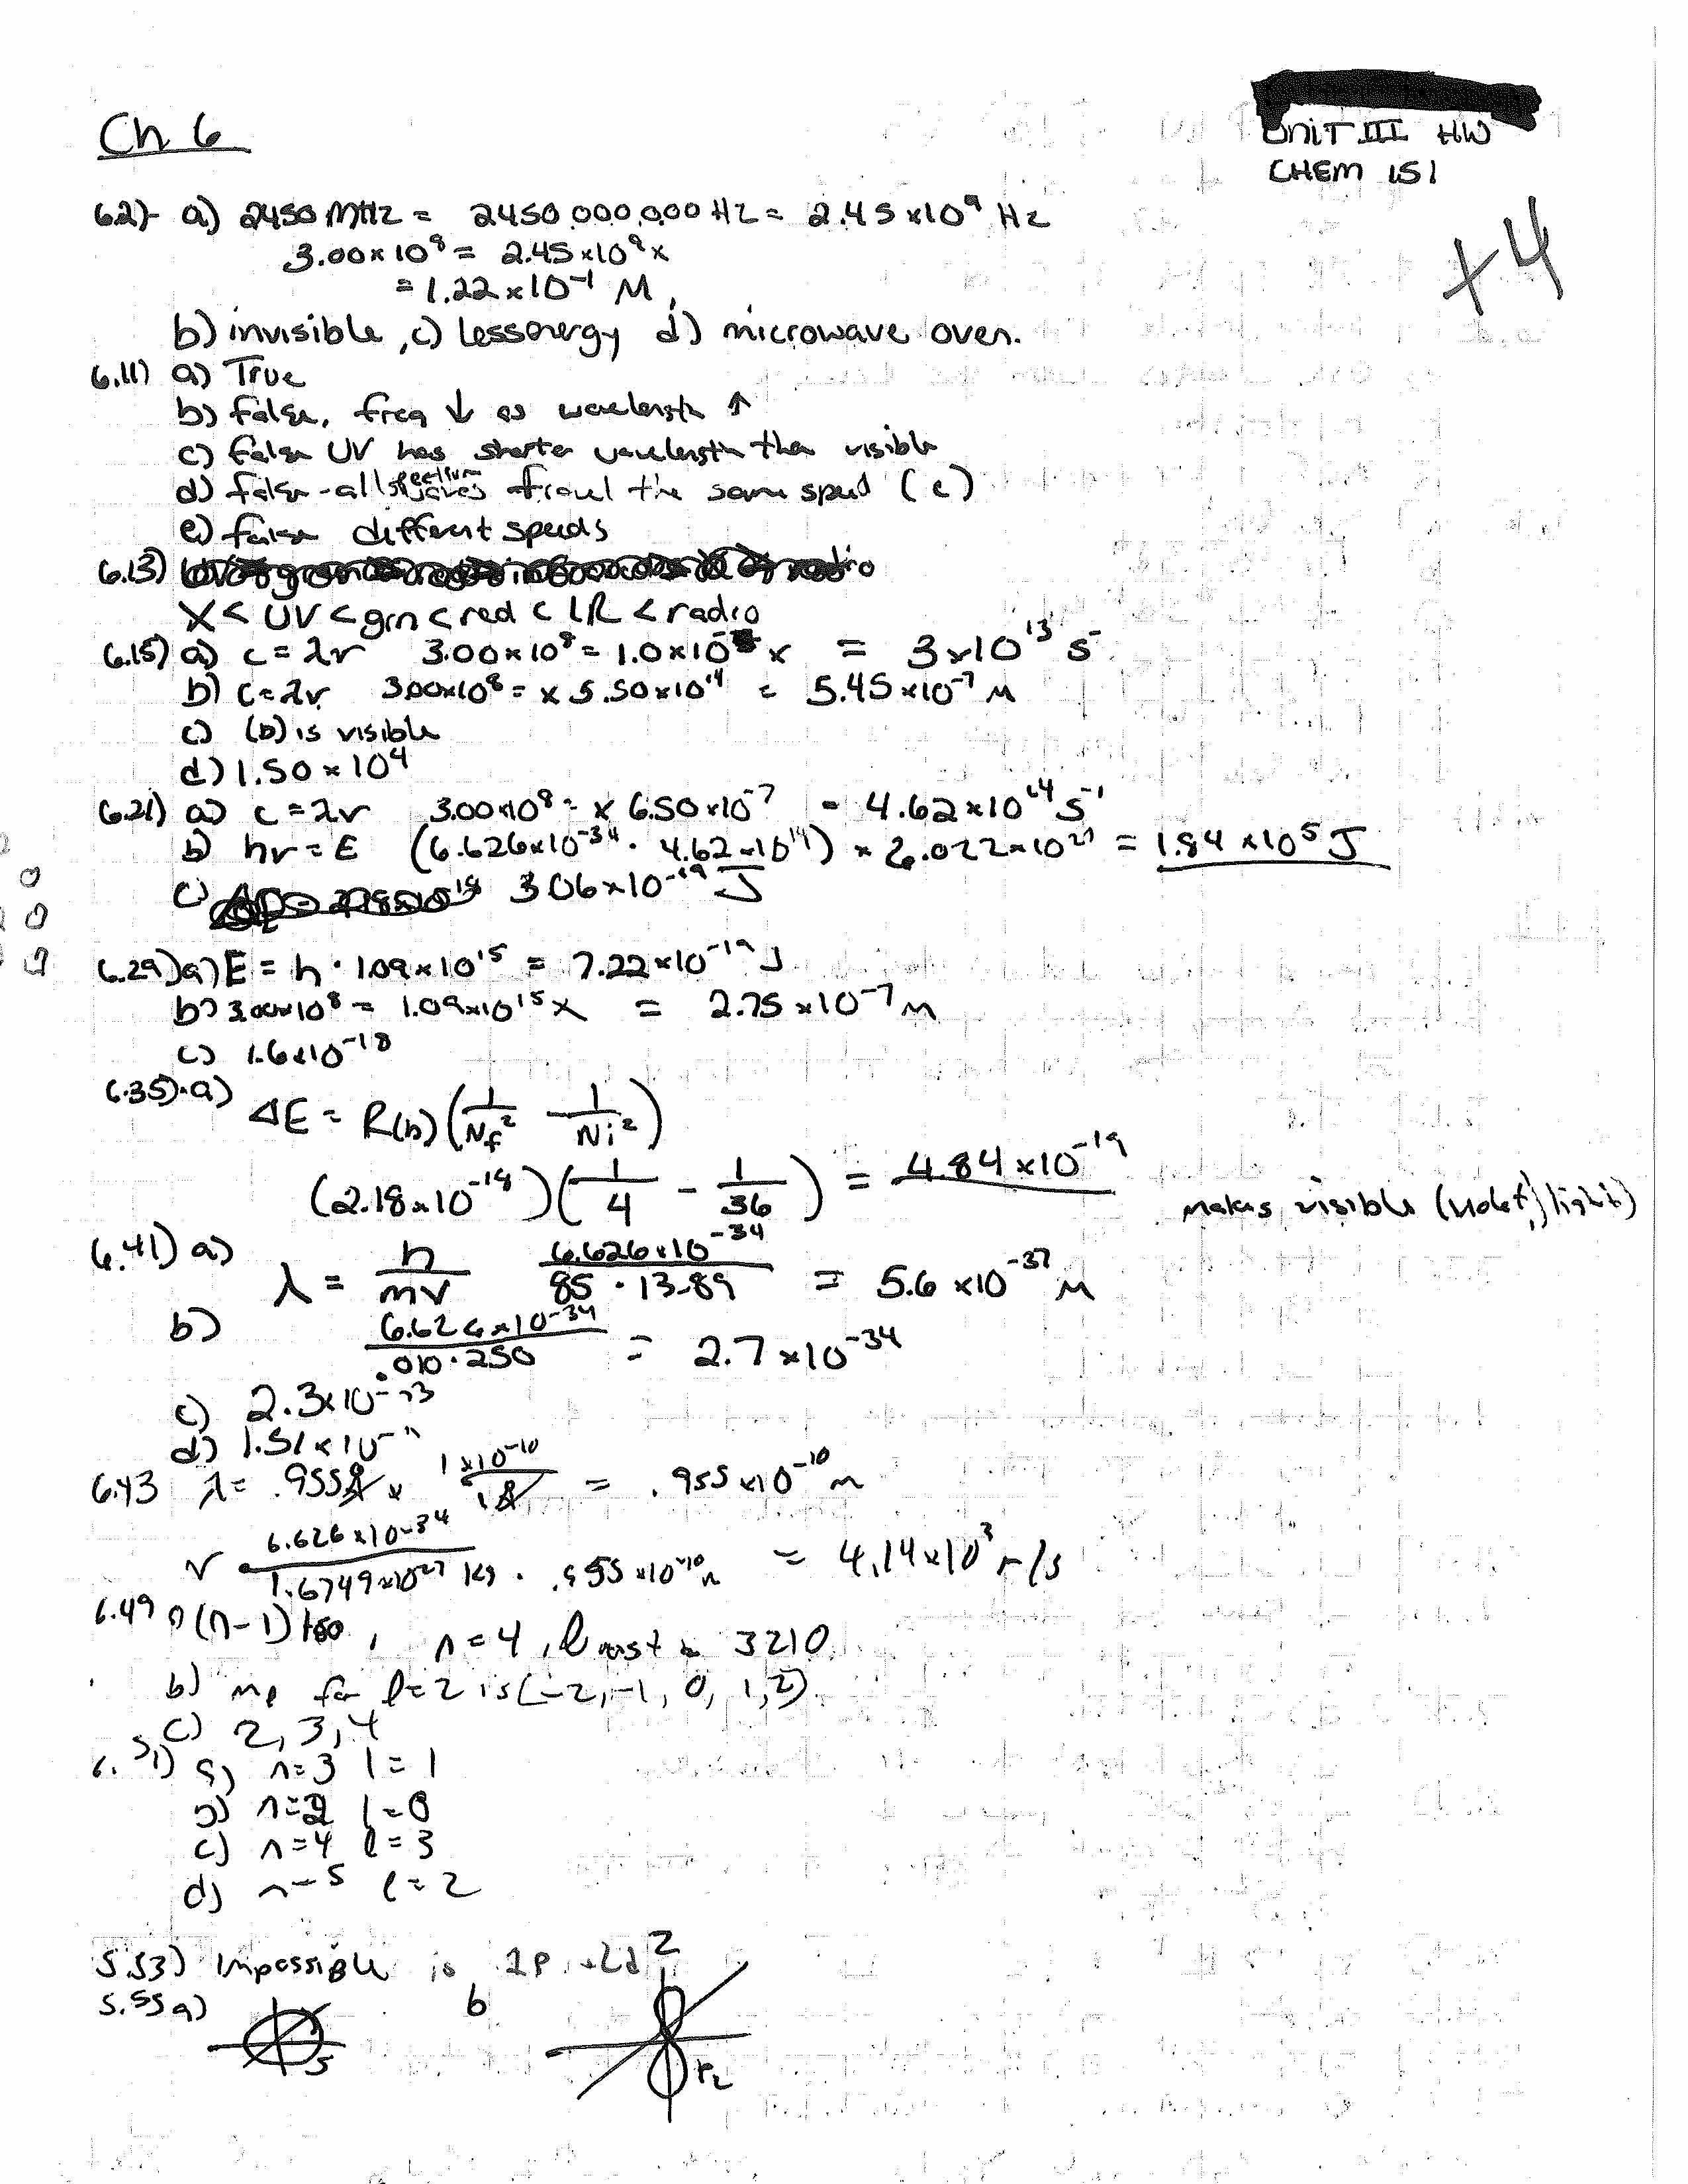 Ch 6
UNIT III HW
CHEM 151
+4
6.2)- a) 2450 MHz = 2450,000,000 Hz = 2.45 x10^9 Hz
3.00 x 10^8 = 2.45 x10^9 x
= 1.22 x 10^-1 M
b) invisible, c) less energy d) microwave oven.
6.11) a) True
b) false, freq ↓ as wavelength ↑
c) false UV has shorter wavelength than visible
d) false - all spectrum waves travel the same speed (c)
e) false different speeds
6.13)
X < UV < grn < red < IR < radio
6.15) a) c = λν 3.00 x 10^8 = 1.0 x 10^-5 x = 3 x 10^13 s^-
b) c = λν 3.00x10^8 = x 5.50 x10^14 = 5.45 x10^-7 M
c) (b) is visible
d) 1.50 x 10^4
6.21) a) c = λν 3.00x10^8 = x 6.50 x10^-7 = 4.62 x10^14 s^-1
b) hν = E (6.626x10^-34 · 4.62 x10^14) x 6.022 x10^23 = 1.84 x10^5 J
c) 3.06 x 10^-19 J
6.29) a) E = h · 1.09 x 10^15 = 7.22 x10^-19 J
b) 3.00x10^8 = 1.09x10^15 x = 2.75 x 10^-7 m
c) 1.6x10^-18
6.35) · a) ΔE = R(h) (1/Nf^2 - 1/Ni^2)
(2.18 x10^-18) (1/4 - 1/36) = 4.84 x10^-19
makes visible (violet) light)
6.41) a) λ = h/mv 6.626x10^-34 / 85 · 13.89 = 5.6 x10^-37 M
b) 6.626x10^-34 / .010 · 250 = 2.7 x10^-34
c) 2.3x10^-13
d) 1.51 x 10^-11
6.43 λ = .955Å x 1 x10^-10 / 1Å = .955 x10^-10 m
v 6.626 x10^-34 / 1.6749x10^-27 kg · .955 x10^-10 m = 4.14 x 10^3 m/s
6.49 n (n-1) to 0, n = 4, l must be 3210
b) ml for l=2 is (-2, -1, 0, 1, 2)
c) 2, 3, 4
6.51) a) n=3 l=1
b) n=2 l=0
c) n=4 l=3
d) n=5 l=2
5.53) impossible is 1p + 2d
5.55 a) b
s
Pz